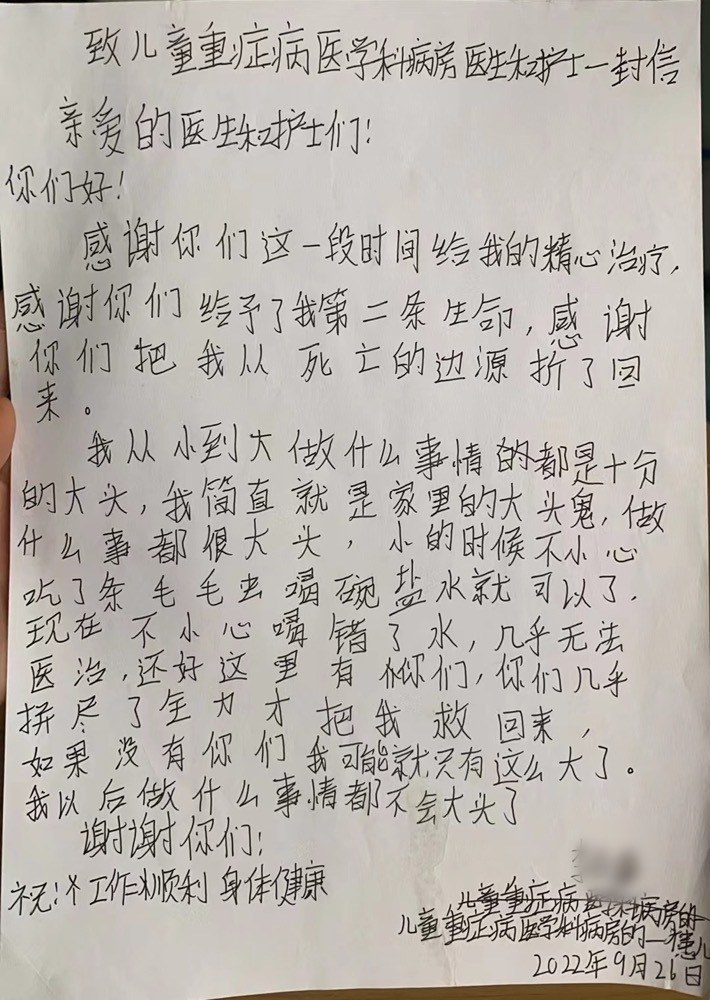 致儿童重症病医学科病房医生和护士一封信
亲爱的医生和护士们!
你们好!
感谢你们这一段时间给我的精心治疗,
感谢你们给予了我第二条生命,感谢
你们把我从死亡的边源折了回
来。
我从小到大做什么事情的都是十分
的大头,我简直就是家里的大头鬼,做
什么事都很大头,小的时候不小心
吃了条毛毛虫喝碗盐水就可以了.
现在不小心喝错了水,几乎无法
医治,还好这里有你们,你们几乎
拼尽了全力才把我救回来,
如果没有你们我可能就只有这么大了。
我以后做什么事情都不会大头了
谢谢你们;
祝:工作顺利 身体健康
儿童重症病医学科病房的
儿童重症病医学科病房的一患儿
2022年9月26日